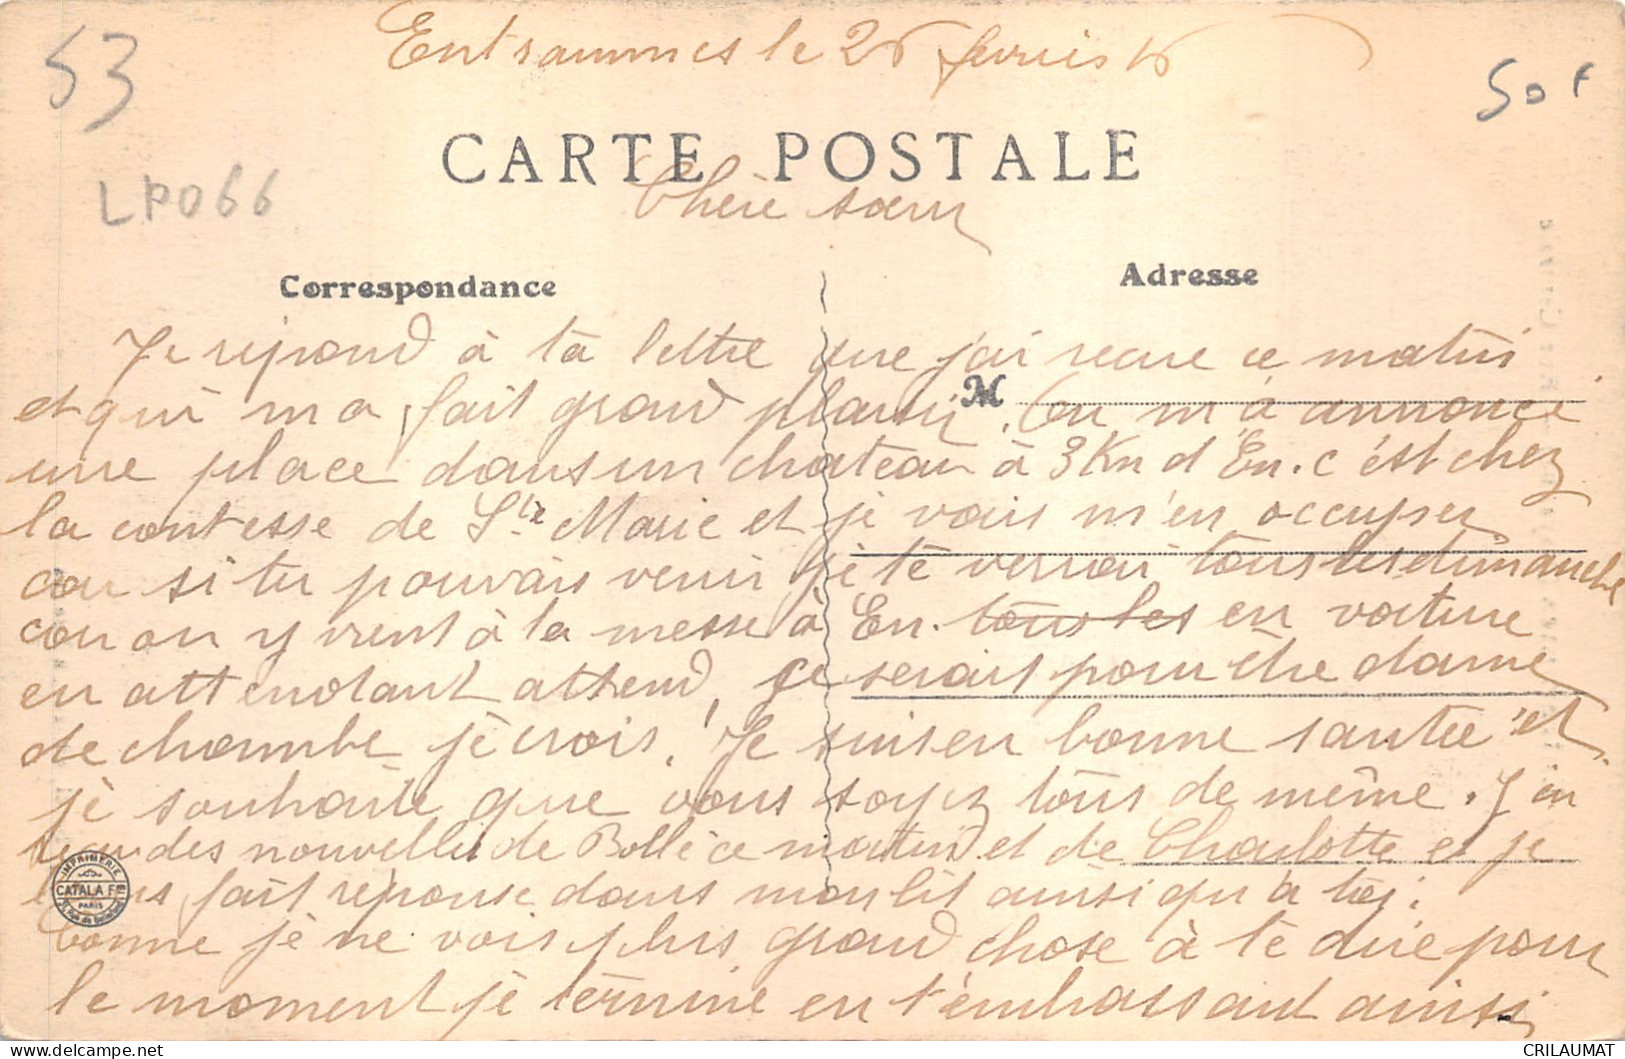 Entrammes le 26 fevrier 16
53
50 F
CARTE POSTALE
LP066
Chère sœur
Correspondance
Adresse
Je répond à ta lettre que j'ai recue ce matin
M
et qui m a fait grand plaisir. On m'à annoncé
une place dans un chateau à 3 Km d'En. c'ést chez
la contesse de Ste Marie et je vais m'en occuper
car si tu pouvais venir je te verrai tous les dimanche
car on y vient à la messe à En. tous les en voiture
en attendant attend, ce serait pour être dame
de chambe jè crois! Je suis en bonne santée et
jè souhaite que vous soyez tous de même. J'ai
des nouvelles de Bollé ce matin et de Charlotte et je
fait réponse dans mon lit ainsi qu'a toi.
IMPRIMERIE CATALA FRES PARIS
Comme jè ne vois plus grand chose à tè dire pour
le moment jè tèrmine en t'émbrassant ainsi
CRILAUMAT